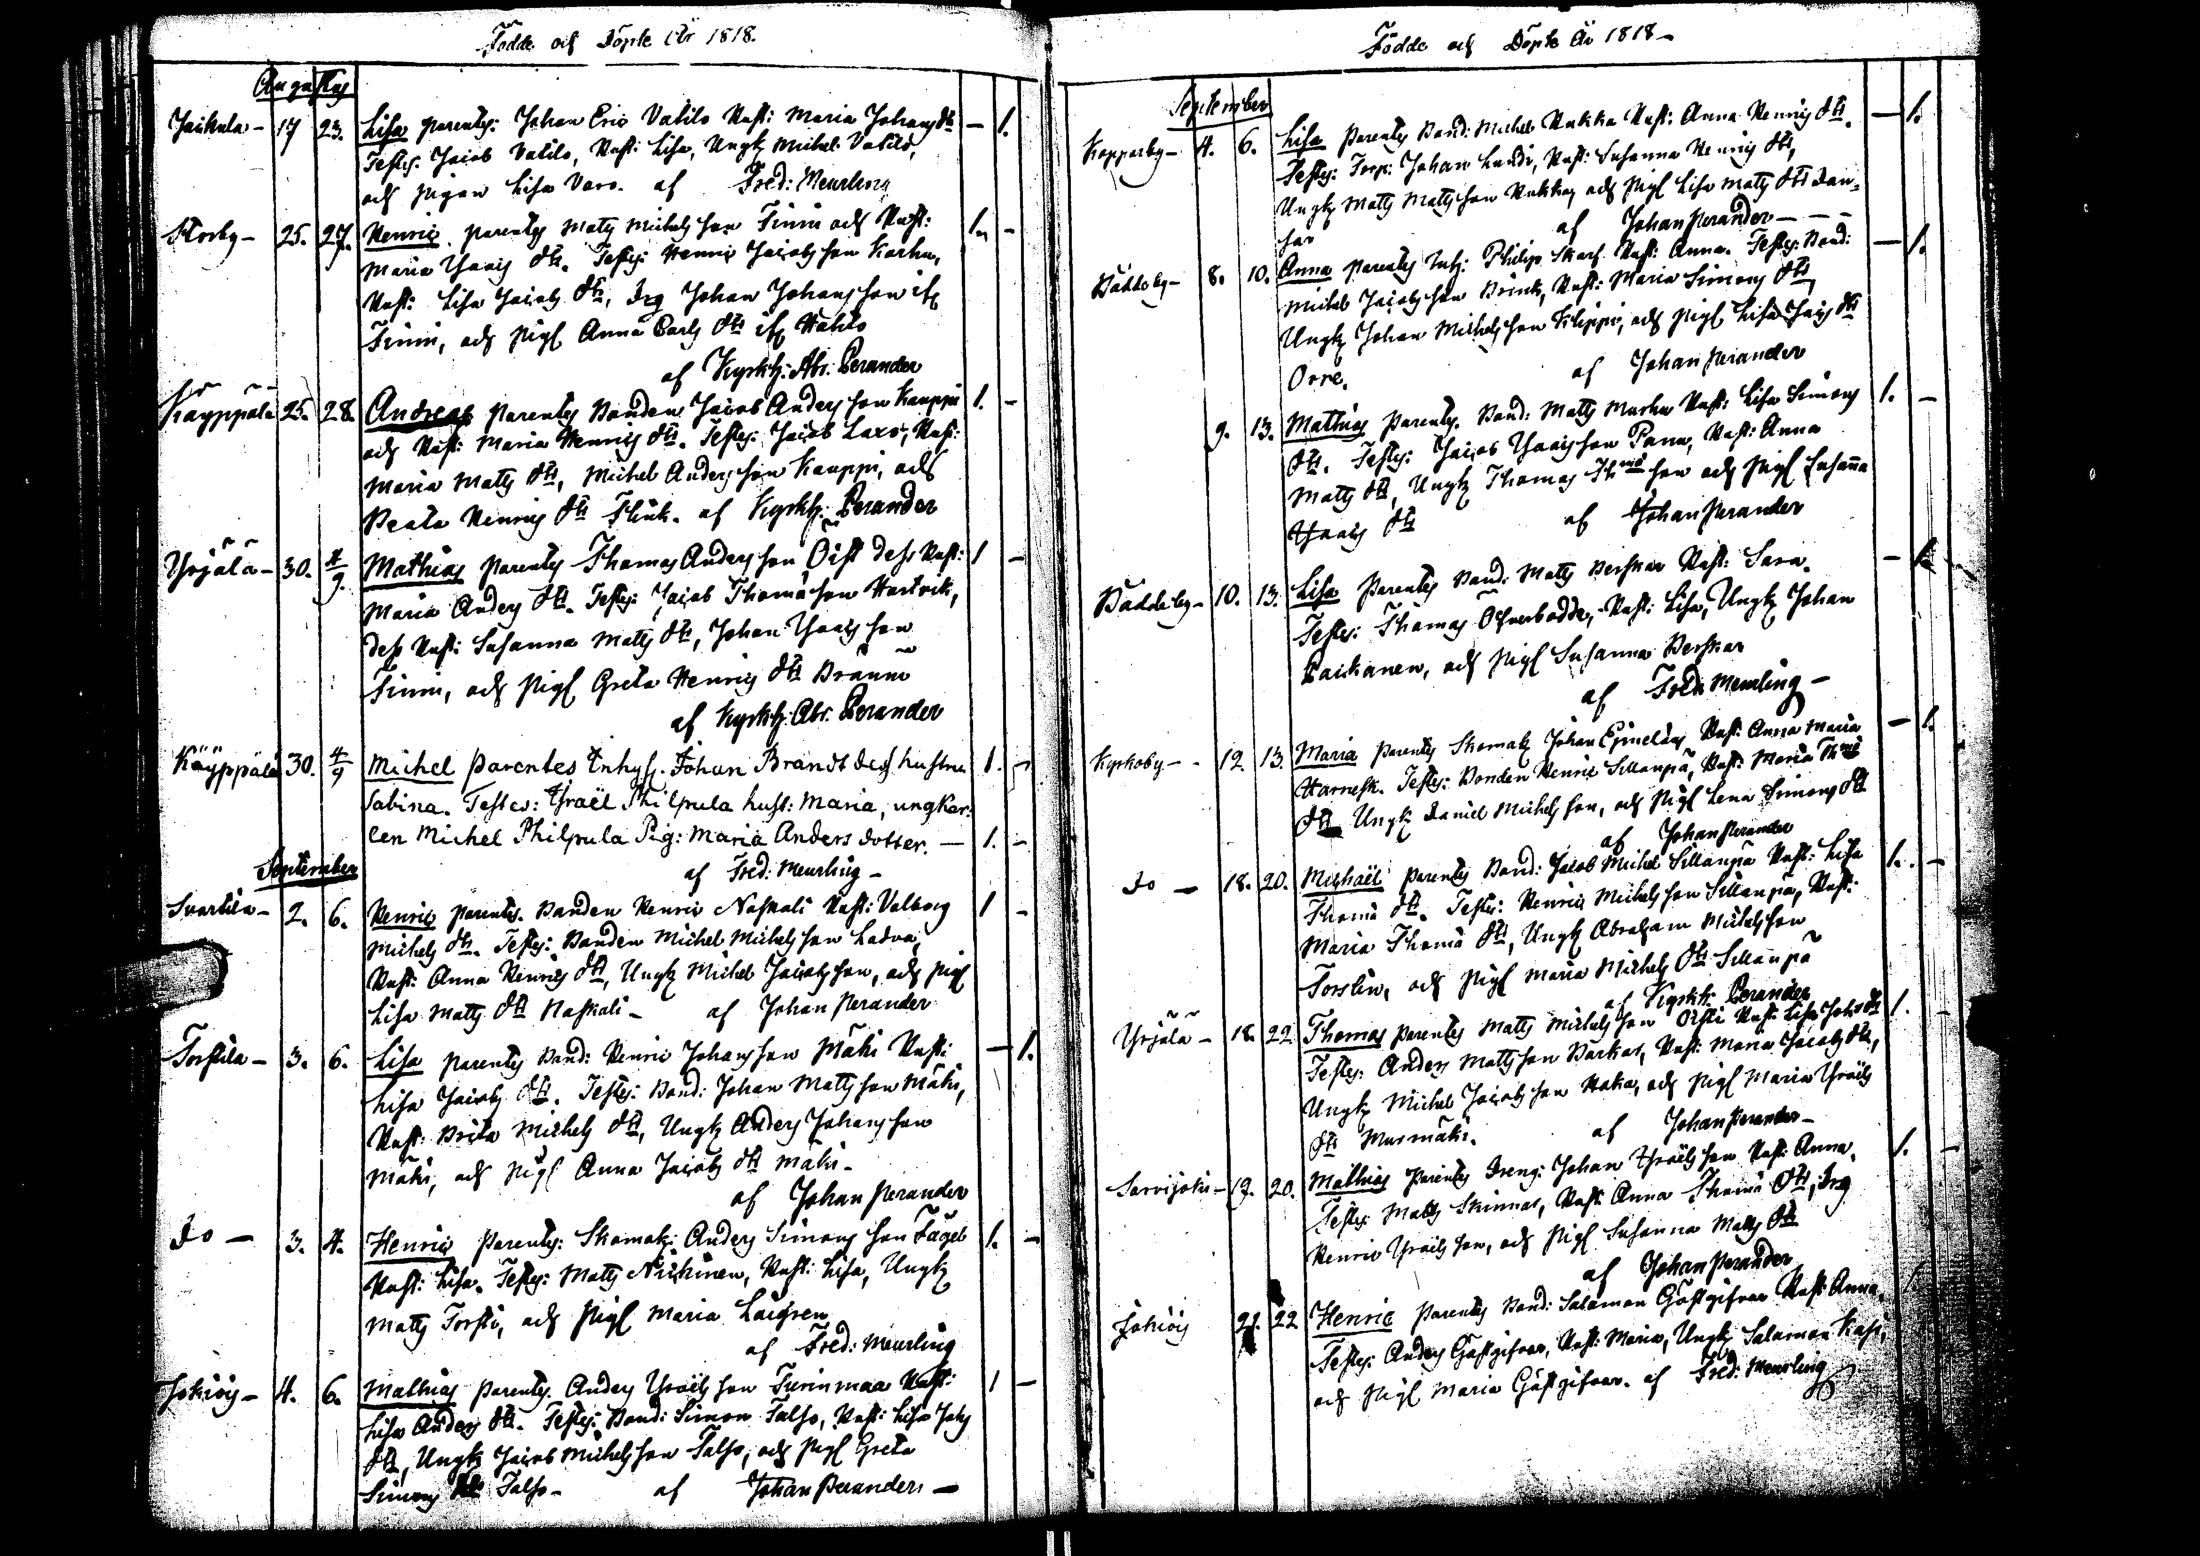 Födde och Döpte År 1818.
Augusty
Jaikula - 17 23. Lisa parentes: Johan Eric Vatilo Hust: Maria Johans dtr - 1.
Testes: Jacob Vatilo, Hust: Lisa, Ungk Michel Vatilo,
och pigan Lisa Varo. af Fred: Meurling
Storby - 25. 27. Henric parentes Matts Michelsson Finni och Hust: 1 -
Maria Isacs dtr. Testes: Henric Jacobsson Karhu,
Hust: Lisa Jacobs dtr, Drg Johan Johansson ifr
Finni, och Pig Anna Carls dtr ifr
af Kyrkh: Abr. Perander
Käyppälä 25. 28. Andreas parentes Bonden Jacob Andersson Kauppi 1. -
och Hust: Maria Henrics dtr. Testes: Jacob Laxo, Hust:
Maria Matts dtr, Michel Andersson Kauppi, och
Beata Henrics dtr Flink. af Kyrkh: Perander
Yrjälä - 30. 4/9. Mathias parentes Thomas Andersson Öist dess Hust: 1 -
Maria Anders dtr. Testes: Jacob Thomasson Hartvik,
dess Hust: Susanna Matts dtr, Johan Isacsson
Finni, och Pig Greta Henrics dtr
af Kyrkh: Abr. Perander
Käyppälä 30. 4/9 Michel parentes Inhys. Johan Brandt des hustru 1. -
Sabina. Testes: Israël Philpula hust: Maria, ungkar:
len Michel Philpula Pig: Maria Anders dotter. - 1. -
af Fred: Meurling -
September
Svartila - 2. 6. Henric parentes. Bonden Henric Naskali Hust: Valborg 1 -
Michels dtr. Testes: Bonden Michel Michelsson Ladva,
Hust: Anna Henrics dtr, Ungk Michel Jacobsson, och Pig
Lisa Matts dtr Naskali - af Johan Perander
Torstila - 3. 6. Lisa parentes Bond: Henric Johansson Mäki Hust: - 1.
Lisa Jacobs dtr. Testes: Bond: Johan Mattsson Mäki,
Hust: Brita Michels dtr, Ungk Anders Johansson
Mäki, och Pig Anna Jacobs dtr Mäki -
af Johan Perander
Do - 3. 4. Henric parentes: Skomak: Anders Simonsson Fägel 1. -
Hust: Lisa. Testes: Matts Nickinen, Hust: Lisa, Ungk
Matts Torsti, och Pig Maria
af Fred: Meurling
Jokiöis - 4. 6. Mathias parentes. Anders Israelsson Hust: 1 -
Lisa Anders dtr. Testes: Bond: Simon Talso, Hust: Lisa Johs
dtr, Ungk Jacob Michelsson Talso, och Pig Greta
Simons dtr Talso - af Johan Perander -
Födde och Döpte År 1818 -
September
Kopparby - 4. 6. Lisa parentes Bond: Michel Kukka Hust: Anna Henrics dtr. - 1.
Testes: Torp: Johan Lundi, Hust: Susanna Henrics dtr,
Ungk Matts Mattsson Kukka, och Pig Lisa Matts dtr
af Johan Perander - - -
Däddeby - 8. 10. Anna parentes Inh: Philip Skarf Hust: Anna. Testes: Bond: - 1.
Michel Jacobsson Brink, Hust: Maria Simons dtr,
Ungk Johan Michelsson Filippi, och Pig Lisa dtr
Orre. af Johan Perander
9. 13. Mathias parentes. Bond: Matts Hust: Lisa Simons 1. -
dtr. Testes: Jacob Isacsson Panu, Hust: Anna
Matts dtr, Ungk Thomas Thomæ son och Pig Susanna
Isacs dtr af Johan Perander
Däddeby - 10. 13. Lisa parentes Bond: Matts Hust: Sara. - 1.
Testes: Thomas Öfverbodde, Hust: Lisa, Ungk Johan
Paikanen, och Pig Susanna
af Fred: Meurling -
Kyrkoby - 12 13. Maria parentes Skomak Johan Hust: Anna Maria - 1.
Harnesk. Testes: Bonden Henric Sillanpä, Hust: Maria Thomæ
dtr Ungk Daniel Michelsson, och Pig Lena Simons dtr
af Johan Perander
Do - 18. 20. Michaël parentes Bond: Jacob Michel Sillanpä Hust: Lisa 1. -
Thomæ dtr. Testes: Henric Michelsson Sillanpä, Hust:
Maria Thomæ dtr, Ungk Abraham Michelsson
Torslin, och Pig Maria Michels dtr Sillanpä
af Kyrkh: Perander
Yrjälä - 18. 22 Thomas parentes Matts Michelsson Öisti Hust: Lisa Johs dtr 1. -
Testes: Anders Mattsson Barkar, Hust: Maria Jacobs dtr,
Ungk Michel Jacobsson Haka, och Pig Maria Israels
dtr Murmäki. af Johan Perander -
Sarvijoki - 19. 20. Mathias parentes Dreng: Johan Israelsson Hust: Anna. 1. -
Testes: Matts Skinnar, Hust: Anna Thomæ dtr, Drg
Henric Israelsson, och Pig Susanna Matts dtr
af Johan Perander
Jokiöis 21. 22 Henric parentes Bond: Salomon Gästgifvar Hust: Anna.
Testes: Anders Gästgifvar, Hust: Maria, Ungk Salomon
och Pig Maria Gästgifvar. af Fred: Meurling